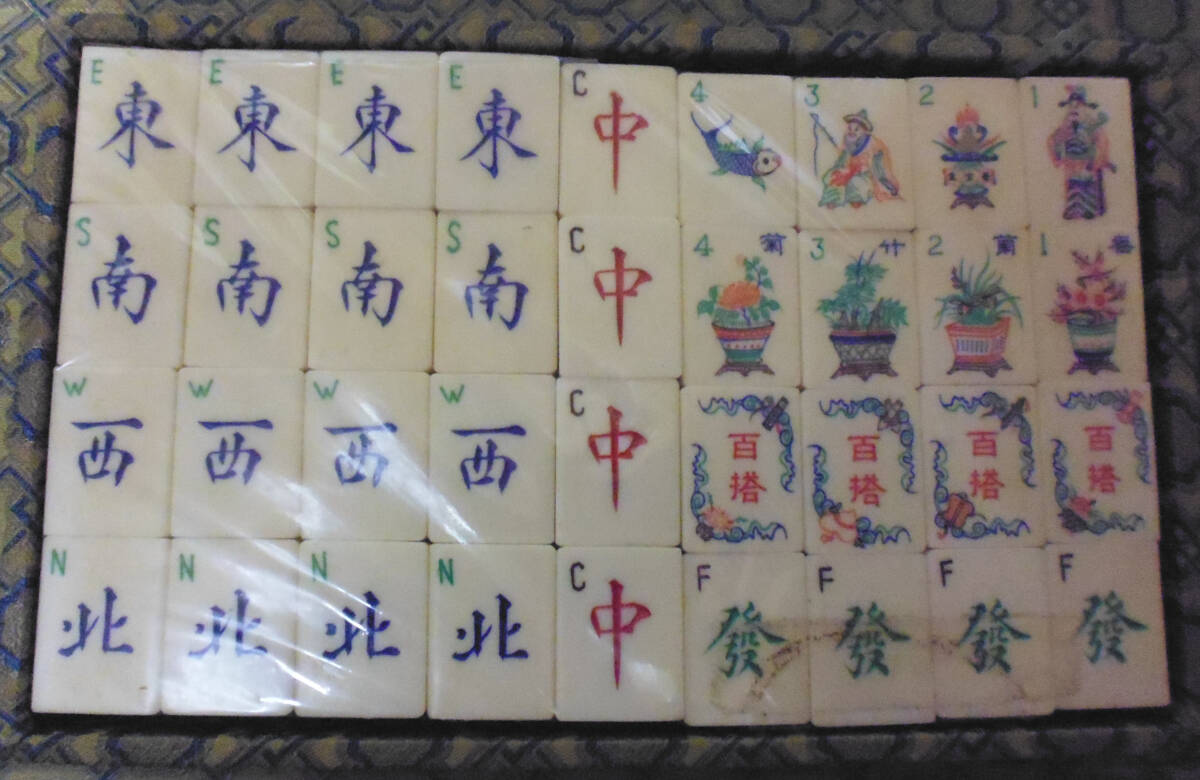 E E E E C 4 3 2 1
東 東 東 東 中
S S S S C 4 菊 3 竹 2 蘭 1
南 南 南 南 中
W W W W C
西 西 西 西 中 百搭 百搭 百搭 百搭
N N N N C F F F F
北 北 北 北 中 發 發 發 發